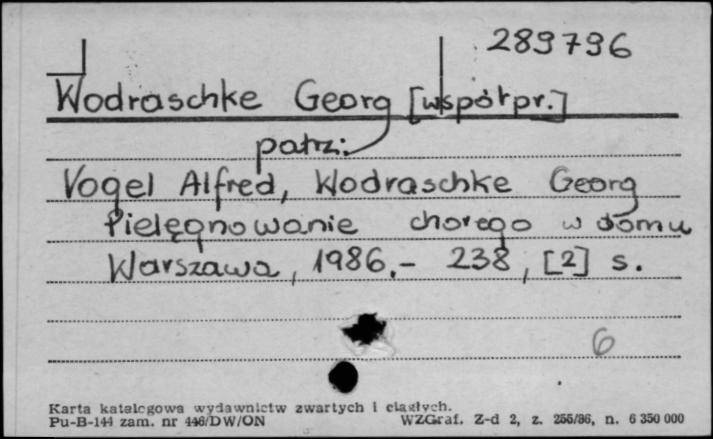 289796
Wodraschke Georg [współpr.]
patrz:
Vogel Alfred, Wodraschke Georg
Pielęgnowanie chorego w domu
Warszawa, 1986.- 238, [2] s.
6
Karta katalogowa wydawnictw zwartych i ciągłych.
Pu-B-144 zam. nr 446/DW/ON WZGraf. Z-d 2, z. 256/86, n. 6 350 000